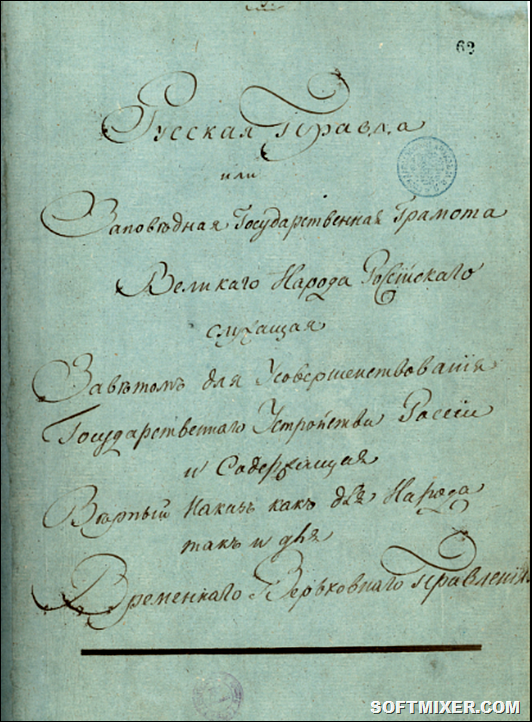 62
Русская Правда
или
Заповѣдная Государственная Грамота
Великаго Народа Россійскаго
служащая
Завѣтомъ для Усовершенствованія
Государственнаго Устройства Россіи
и Содержащая
Вѣрный Наказъ какъ для Народа
такъ и для
Временнаго Верьховнаго Правленія
SOFTMIXER.COM